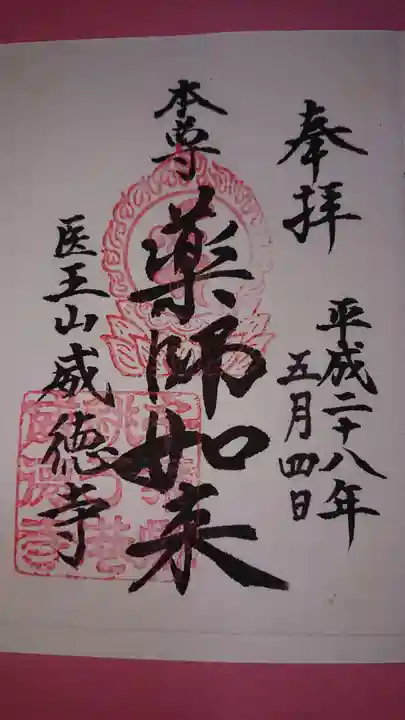 奉拝
平成二十八年
五月四日
本尊
薬師如来
医王山威徳寺